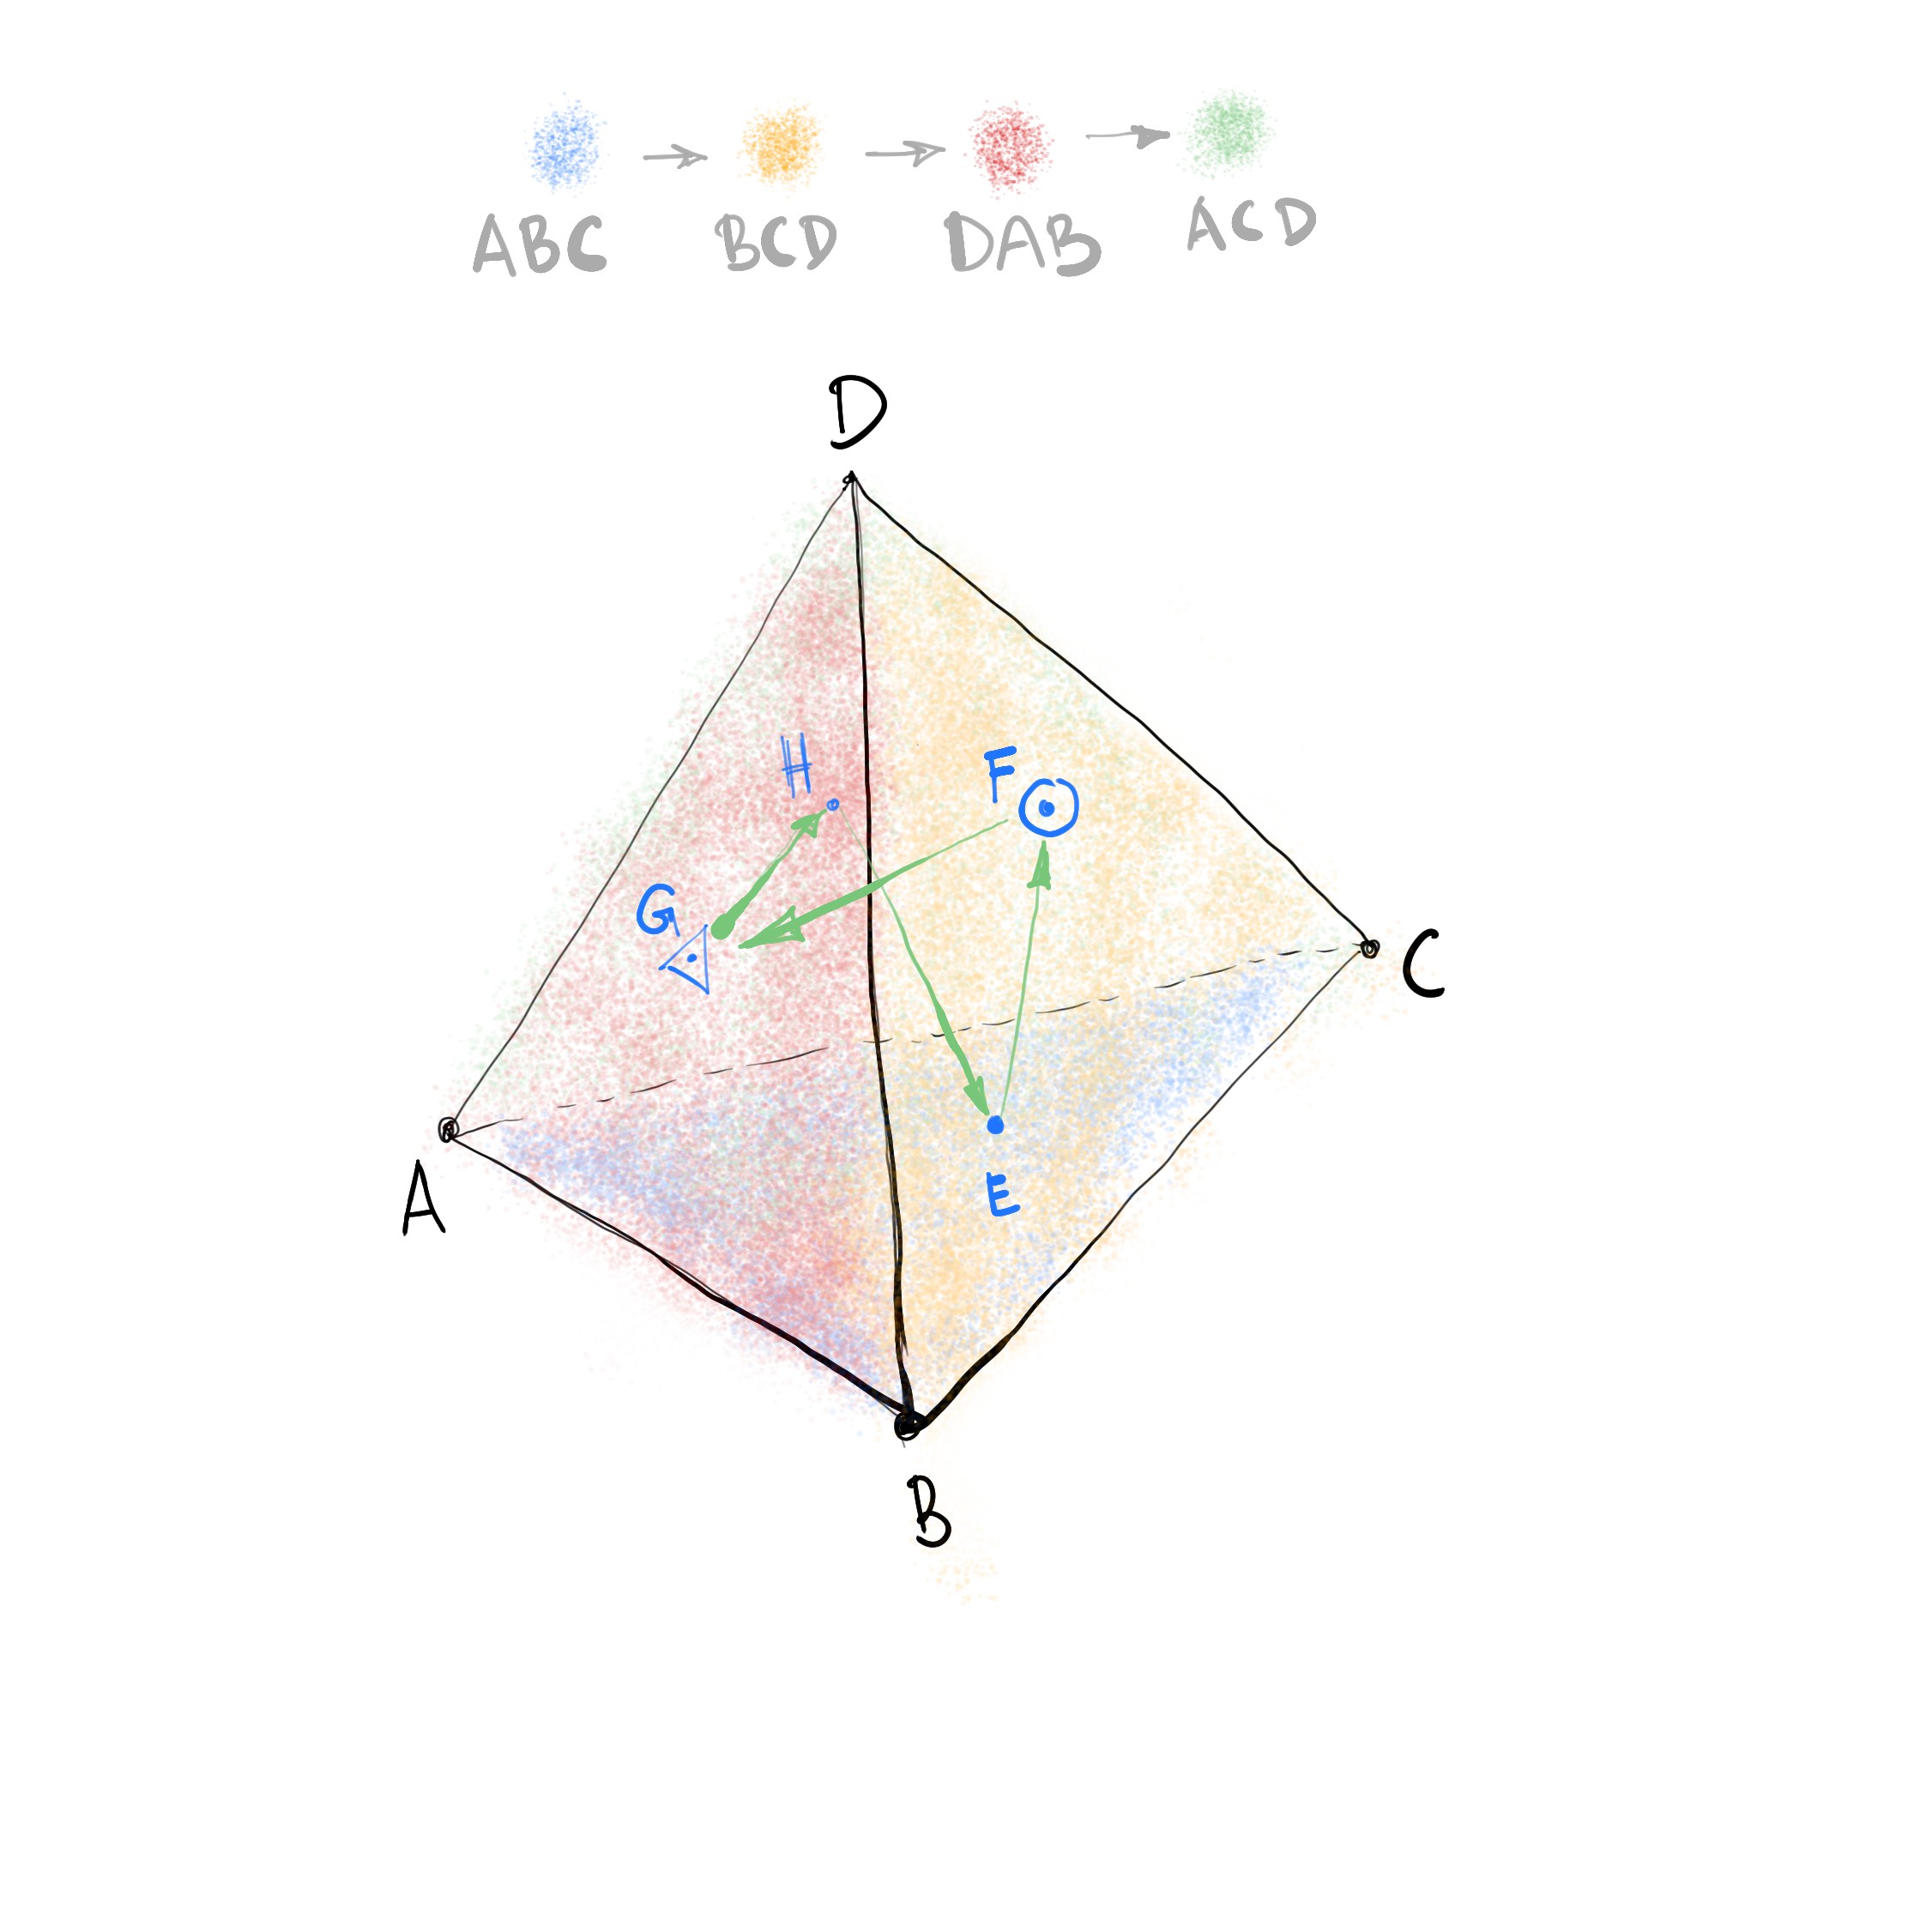 ABC BCD DAB ACD
D
H F
G
C
A
E
B